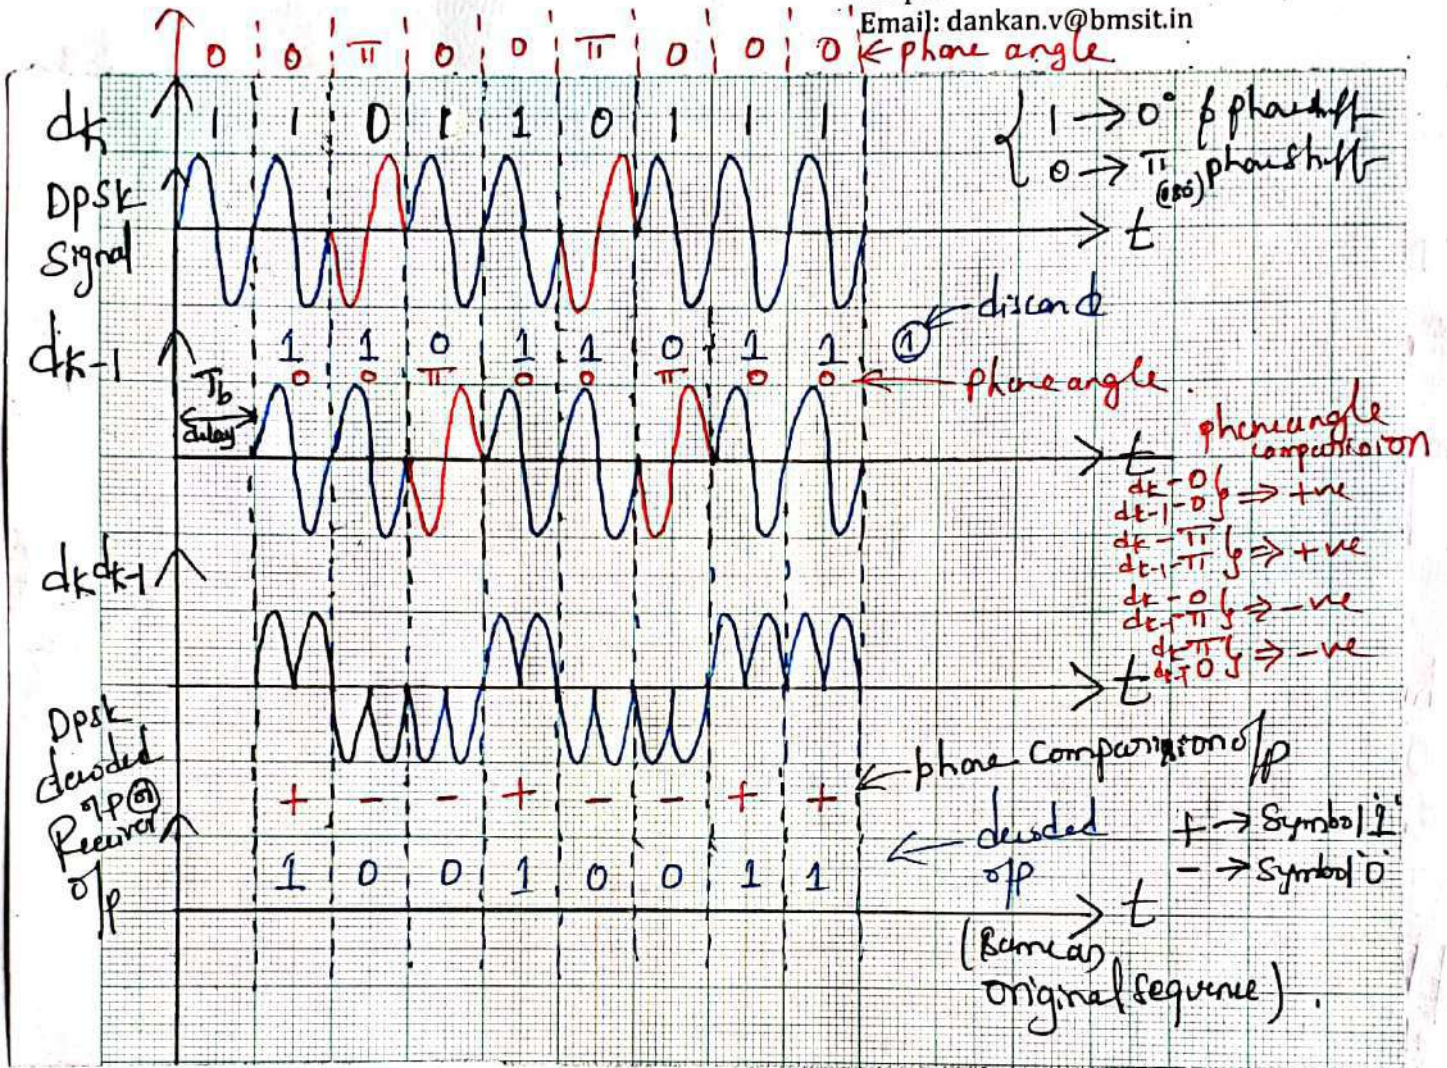 Email: dankan.v@bmsit.in
0 0 π 0 0 π 0 0 0 ← phase angle
dk 1 1 0 1 1 0 1 1 1
1 → 0° phase shift
0 → π (180°) phase shift
DPSK
Signal
t
discard
dk-1 1 1 0 1 1 0 1 1 ①
0 0 π 0 0 π 0 0 ← phase angle
Tb
delay
t
phase angle
comparision
dk - 0
dk-1 - 0 } ⇒ +ve
dk - π
dk-1 - π } ⇒ +ve
dk - 0
dk-1 π } ⇒ -ve
dk π
dk-1 0 } ⇒ -ve
dk dk-1
t
DPSK
decoded
o/p (or)
Receiver
o/p
+ - - + - - + + ← phase Comparision o/p
1 0 0 1 0 0 1 1 ← decoded
o/p
+ → Symbol '1'
- → Symbol '0'
t
(Same as
original sequence).